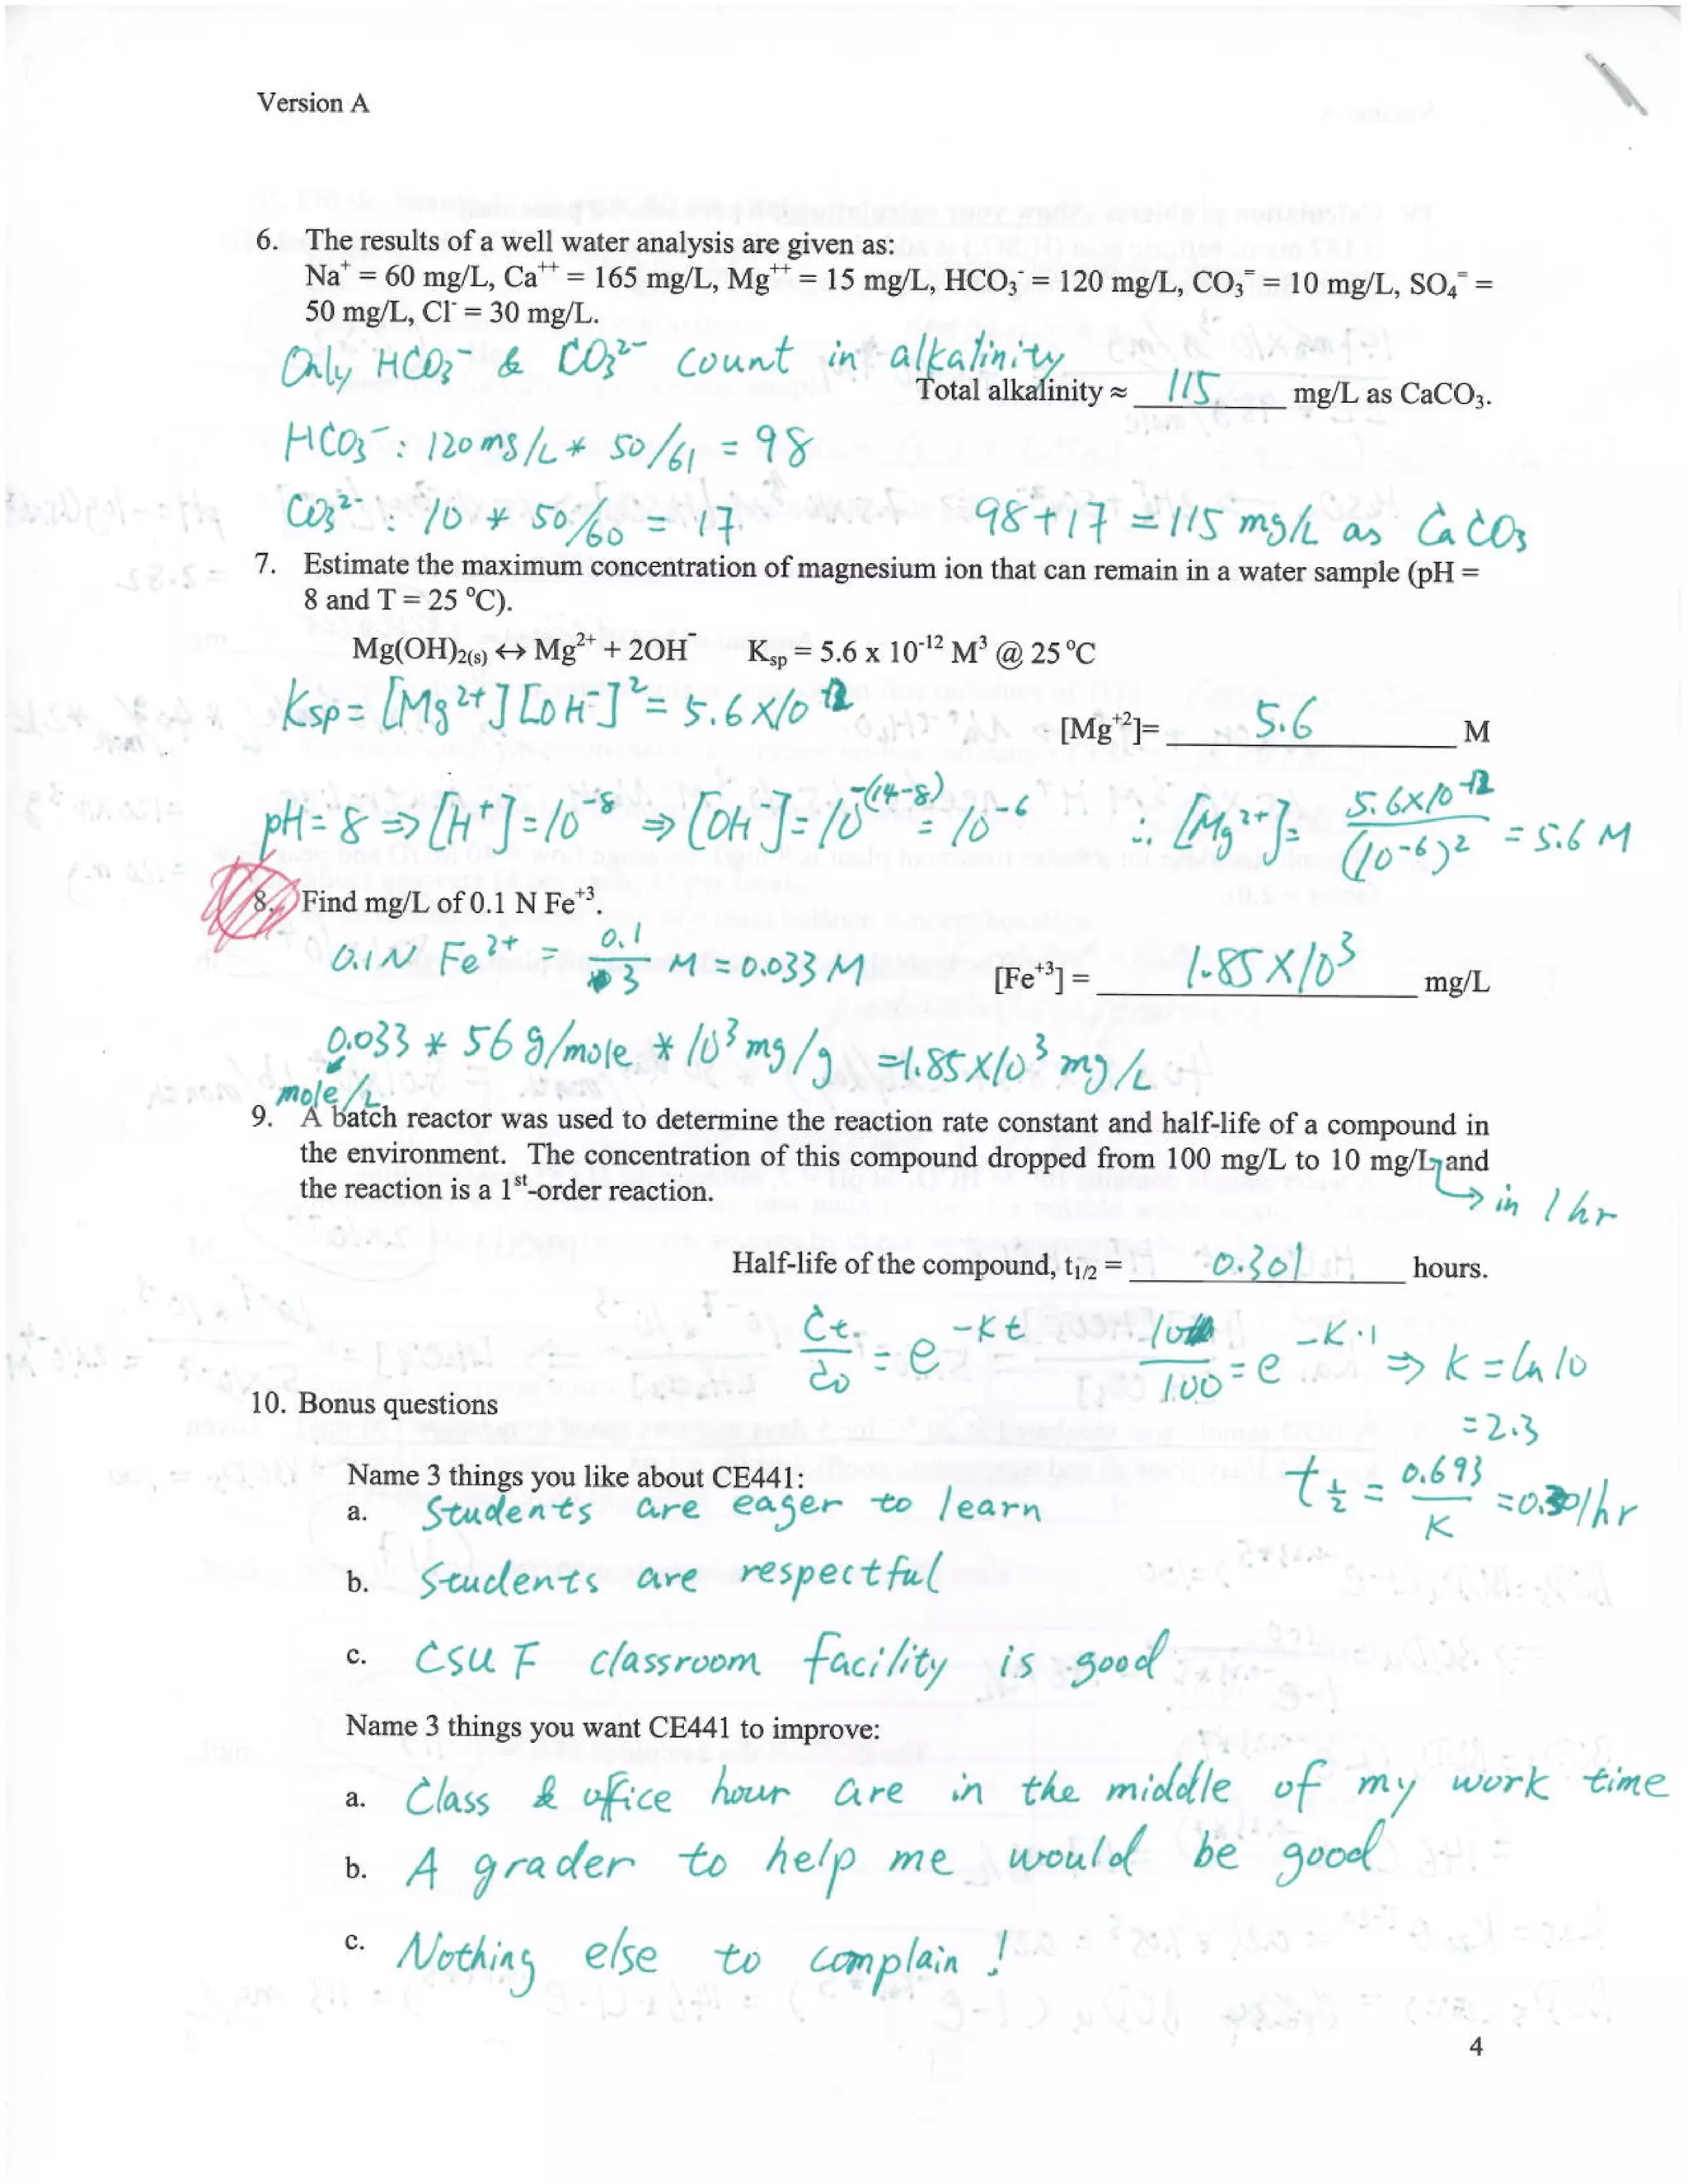 Version A
6. The results of a well water analysis are given as:
Na⁺ = 60 mg/L, Ca⁺⁺ = 165 mg/L, Mg⁺⁺ = 15 mg/L, HCO₃⁻ = 120 mg/L, CO₃⁼ = 10 mg/L, SO₄⁼ =
50 mg/L, Cl⁻ = 30 mg/L.
Only HCO₃⁻ & CO₃²⁻ count in alkalinity
Total alkalinity ≈ 115 mg/L as CaCO₃.
HCO₃⁻ : 120 mg/L * 50/61 = 98
CO₃²⁻ : 10 * 50/60 = 17 98 + 17 = 115 mg/L as CaCO₃
7. Estimate the maximum concentration of magnesium ion that can remain in a water sample (pH =
8 and T = 25 ⁰C).
Mg(OH)₂₍s₎ ↔ Mg²⁺ + 2OH⁻ Ksp = 5.6 x 10⁻¹² M³ @ 25 ⁰C
Ksp = [Mg²⁺][OH⁻]² = 5.6 x10⁻¹²
[Mg⁺²]= 5.6 M
pH = 8 ⇒ [H⁺] = 10⁻⁸ ⇒ [OH⁻] = 10⁻⁽¹⁴⁻⁸⁾ = 10⁻⁶ ∴ [Mg²⁺] = 5.6x10⁻¹² / (10⁻⁶)² = 5.6 M
8. Find mg/L of 0.1 N Fe⁺³.
0.1 N Fe²⁺ = 0.1/3 M = 0.033 M
[Fe⁺³] = 1.85 x 10³ mg/L
0.033 * 56 g/mole * 10³ mg/g = 1.85 x 10³ mg/L
mole/L
9. A batch reactor was used to determine the reaction rate constant and half-life of a compound in
the environment. The concentration of this compound dropped from 100 mg/L to 10 mg/L and
the reaction is a 1ˢᵗ-order reaction.
→ in 1 hr
Half-life of the compound, t₁/₂ = 0.301 hours.
Ct/C0 = e^-Kt 10/100 = e^-K·1 ⇒ K = ln 10
= 2.3
10. Bonus questions
Name 3 things you like about CE441:
t ½ = 0.693/K = 0.301 hr
a. Students are eager to learn
b. Students are respectful
c. CSUF classroom facility is good
Name 3 things you want CE441 to improve:
a. Class & office hour are in the middle of my work time
b. A grader to help me would be good
c. Nothing else to complain !
4